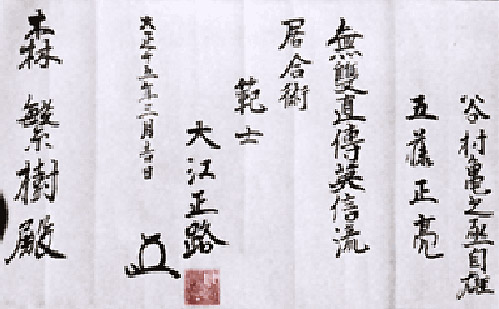 谷村亀之丞自雄
五藤正亮
無雙直傳英信流
居合術
範士
大江正路
大正十五年三月吉日
森繁樹殿